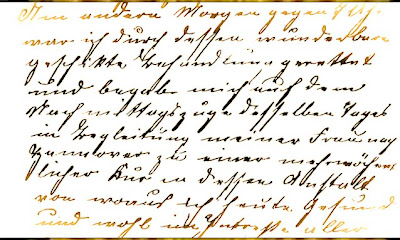 Am andern Morgen gegen 7 Uhr
war ich durch dessen wunderbare
geschickte Behandlung gerettet
und begab mich auf dem
Nachmittagszuge desselben Tages
in Begleitung meiner Frau nach
Hannover zu einer mehrwöchent
licher Kur in dessen Anstalt
von woraus ich heute gesund
und wohl im Intresse aller